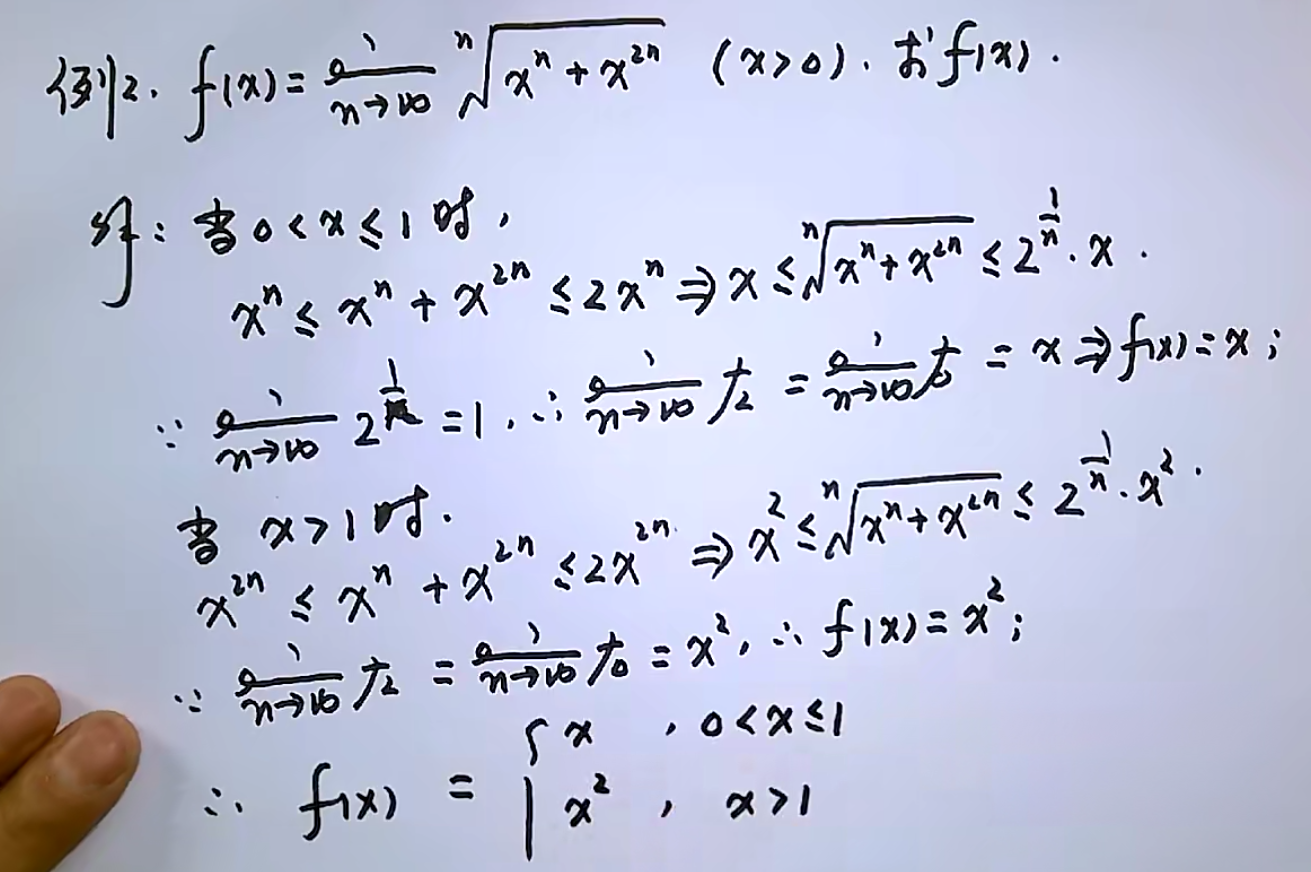 例2. f(x) = lim_{n→∞} ⁿ√(xⁿ + x²ⁿ) (x>0). 求f(x).
解: 当 0 < x ≤ 1 时,
xⁿ ≤ xⁿ + x²ⁿ ≤ 2xⁿ ⇒ x ≤ ⁿ√(xⁿ + x²ⁿ) ≤ 2^{1/n}·x.
∵ lim_{n→∞} 2^{1/n} = 1, ∴ lim_{n→∞} 左 = lim_{n→∞} 右 = x ⇒ f(x) = x;
当 x > 1 时.
x²ⁿ ≤ xⁿ + x²ⁿ ≤ 2x²ⁿ ⇒ x² ≤ ⁿ√(xⁿ + x²ⁿ) ≤ 2^{1/n}·x².
∵ lim_{n→∞} 左 = lim_{n→∞} 右 = x², ∴ f(x) = x²;
∴ f(x) = { x , 0 < x ≤ 1
x² , x > 1